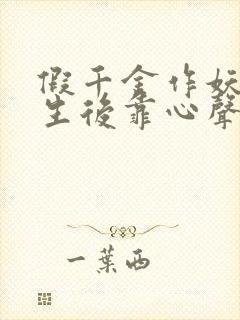 假千金作妖
生後靠心聲
一葉西